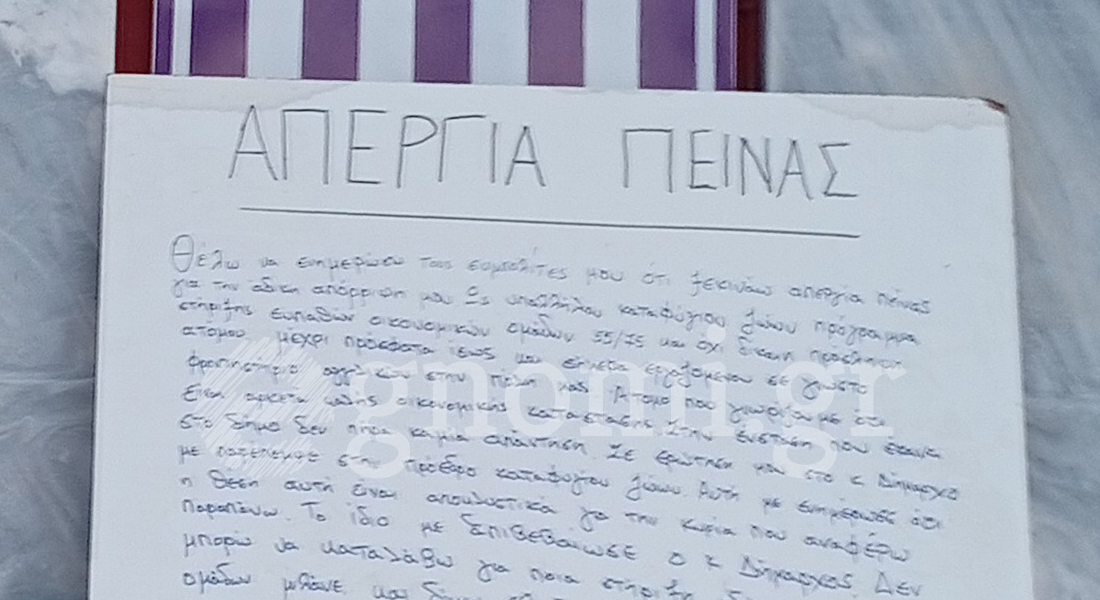 ΑΠΕΡΓΙΑ ΠΕΙΝΑΣ
Θέλω να ενημερώσω τους συμπολίτες μου ότι ξεκινάω απεργία πείνας
για την άδικη απόρριψη μου Ως υπαλλήλου καταφύγιου ζώων πρόγραμμα
στήριξης ευπαθών οικονομικών ομάδων 55/75 και όχι δίκαιη πρόσληψη
ατόμου μέχρι πρόσφατα ίσως και σήμερα εργαζόμενου σε γνωστό
φροντιστήριο αγγλικών στην πόλη μας. Άτομο που γνωρίζουμε ότι
είναι αρκετά καλής οικονομικής κατάστασης. Στην ένσταση που έκανα
στο δήμο δεν πήρα καμία απάντηση. Σε ερώτηση μου στο κ Δήμαρχο
με παρέπεμψε στην πρόεδρο καταφυγίου ζώων. Αυτή με ενημέρωσε ότι
η θέση αυτή είναι αποκλειστικά για την κυρία που αναφέρω
παραπάνω. Το ίδιο με επιβεβαίωσε ο κ Δήμαρχος. Δεν
μπορώ να καταλάβω για ποια στήριξη
ομάδων μιλάνε και
gnomi.gr